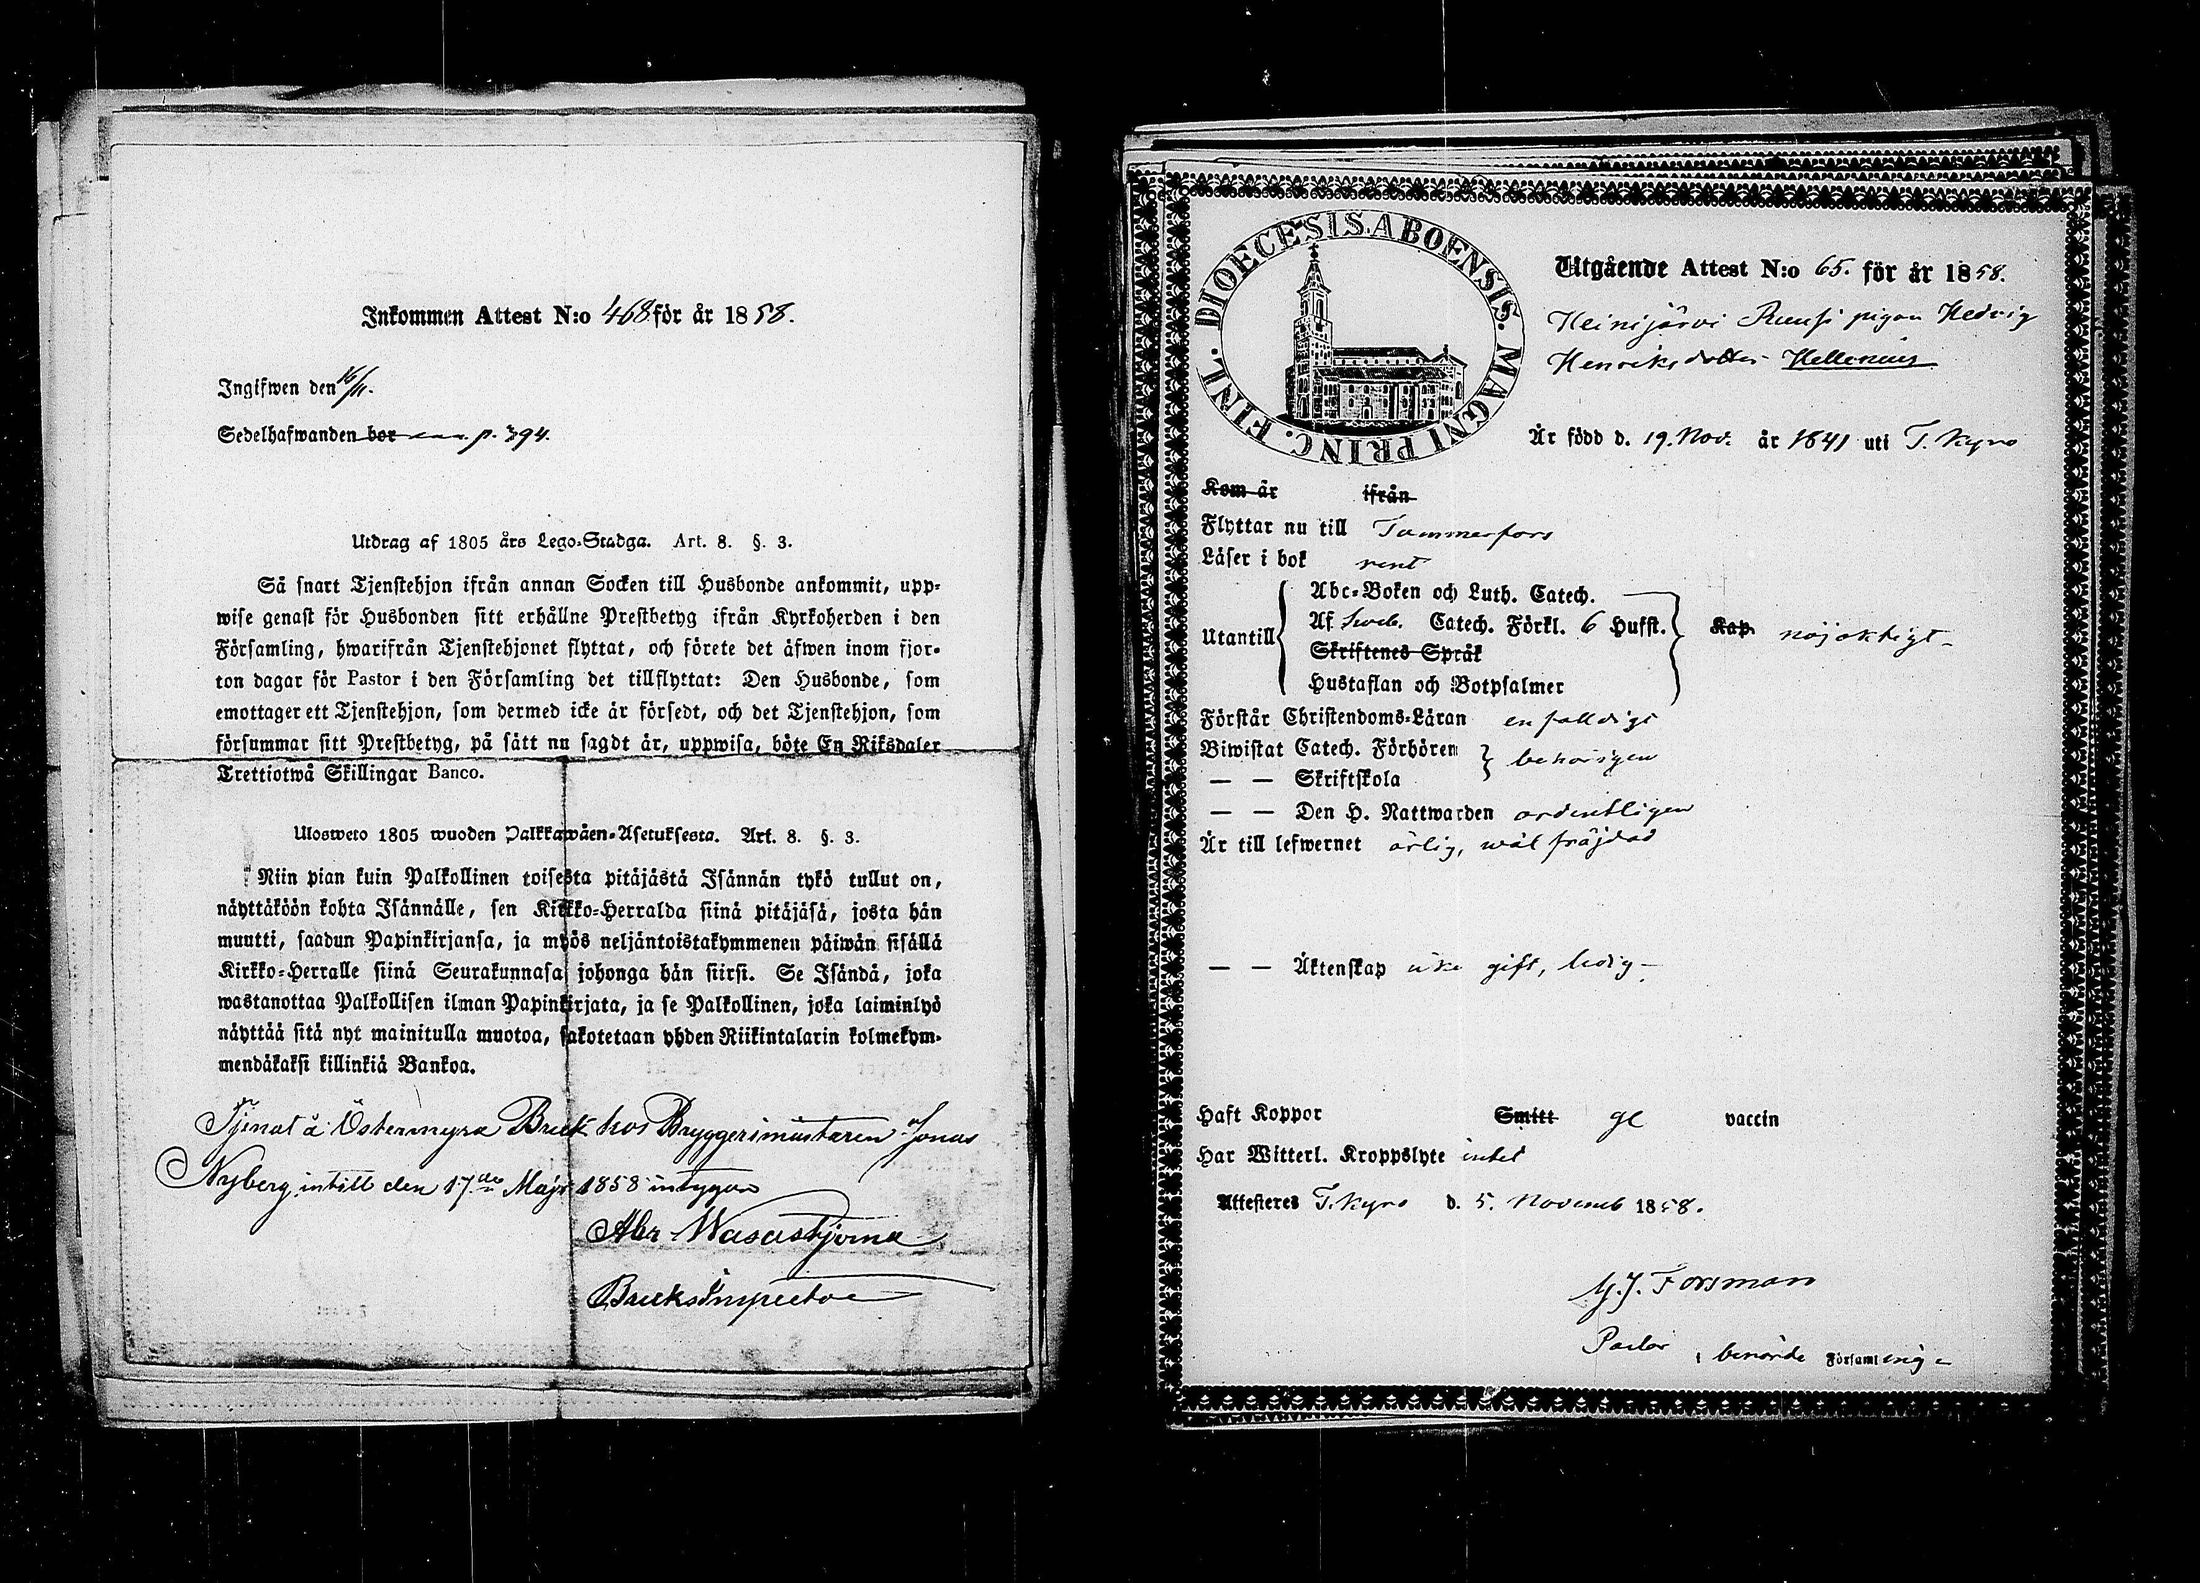 Inkommen Attest N:o 468 för år 1858.
Ingifwen den 16/11.
Sedelhafwanden bor p. 394.
Utdrag af 1805 års Lego-Stadga. Art. 8. §. 3.
Så snart Tjenstehjon ifrån annan Socken till Husbonde ankommit, upp-
wise genast för Husbonden sitt erhållne Prestbetyg ifrån Kyrkoherden i den
Församling, hwarifrån Tjenstehjonet flyttat, och förete det äfwen inom fjor-
ton dagar för Pastor i den Församling det tillflyttat: Den Husbonde, som
emottager ett Tjenstehjon, som dermed icke är försedt, och det Tjenstehjon, som
försummar sitt Prestbetyg, på sätt nu sagdt är, uppwisa, böte En Riksdaler
Trettiotwå Skillingar Banco.
Ulosweto 1805 wuoden Palkkawäen-Asetuksesta. Art. 8. §. 3.
Niin pian kuin Palkollinen toisesta pitäjästä Isännän tykö tullut on,
näyttäköön kohta Isännälle, sen Kirkko-Herralda siinä pitäjäsä, josta hän
muutti, saadun Papinkirjansa, ja myös neljäntoistakymmenen päiwän sisällä
Kirkko-Herralle siinä Seurakunnasa johonga hän siirsi. Se Isändä, joka
wastanottaa Palkollisen ilman Papinkirjata, ja se Palkollinen, joka laiminlyö
näyttää sitä nyt mainitulla muotoa, sakotetaan yhden Riikintalarin kolmekym-
mendäkaksi killinkiä Bankoa.
Tjenat å Östermyra Bruk hos Bryggerimästaren Jonas
Nyberg intill den 17de Maji 1858 intygar
Abr Wasastjerna
BruksInspector
DIOECESIS ABOENSIS. MAGNI PRINC. FINL.
Utgående Attest N:o 65. för år 1858.
Heinijärvi Ruusi pigan Hedvig
Henriksdotter Hellenius
Är född d. 19. Nov. år 1841 uti T. Kyro
Kom år ifrån
Flyttar nu till Tammerfors
Läser i bok rent
Utantill
Abc-Boken och Luth. Catech.
Af Sweb. Catech. Förkl. 6 Hufst. Kap. nöjaktigt
Skriftenes Språk
Hustaflan och Botpsalmer
Förstår Christendoms-Läran enfalldigt
Biwistat Catech. Förhören behörigen
— — Skriftskola
— — Den H. Nattwarden ordentligen
Är till lefwernet ärlig, wäl fräjdad
— — Äktenskap icke gift, ledig
Haft Koppor Smitt vaccin
Har Witterl. Kroppslyte intet
Attesteres T. Kyro d. 5. Novemb 1858.
G. J. Forsman
Pastor i berörde Församling